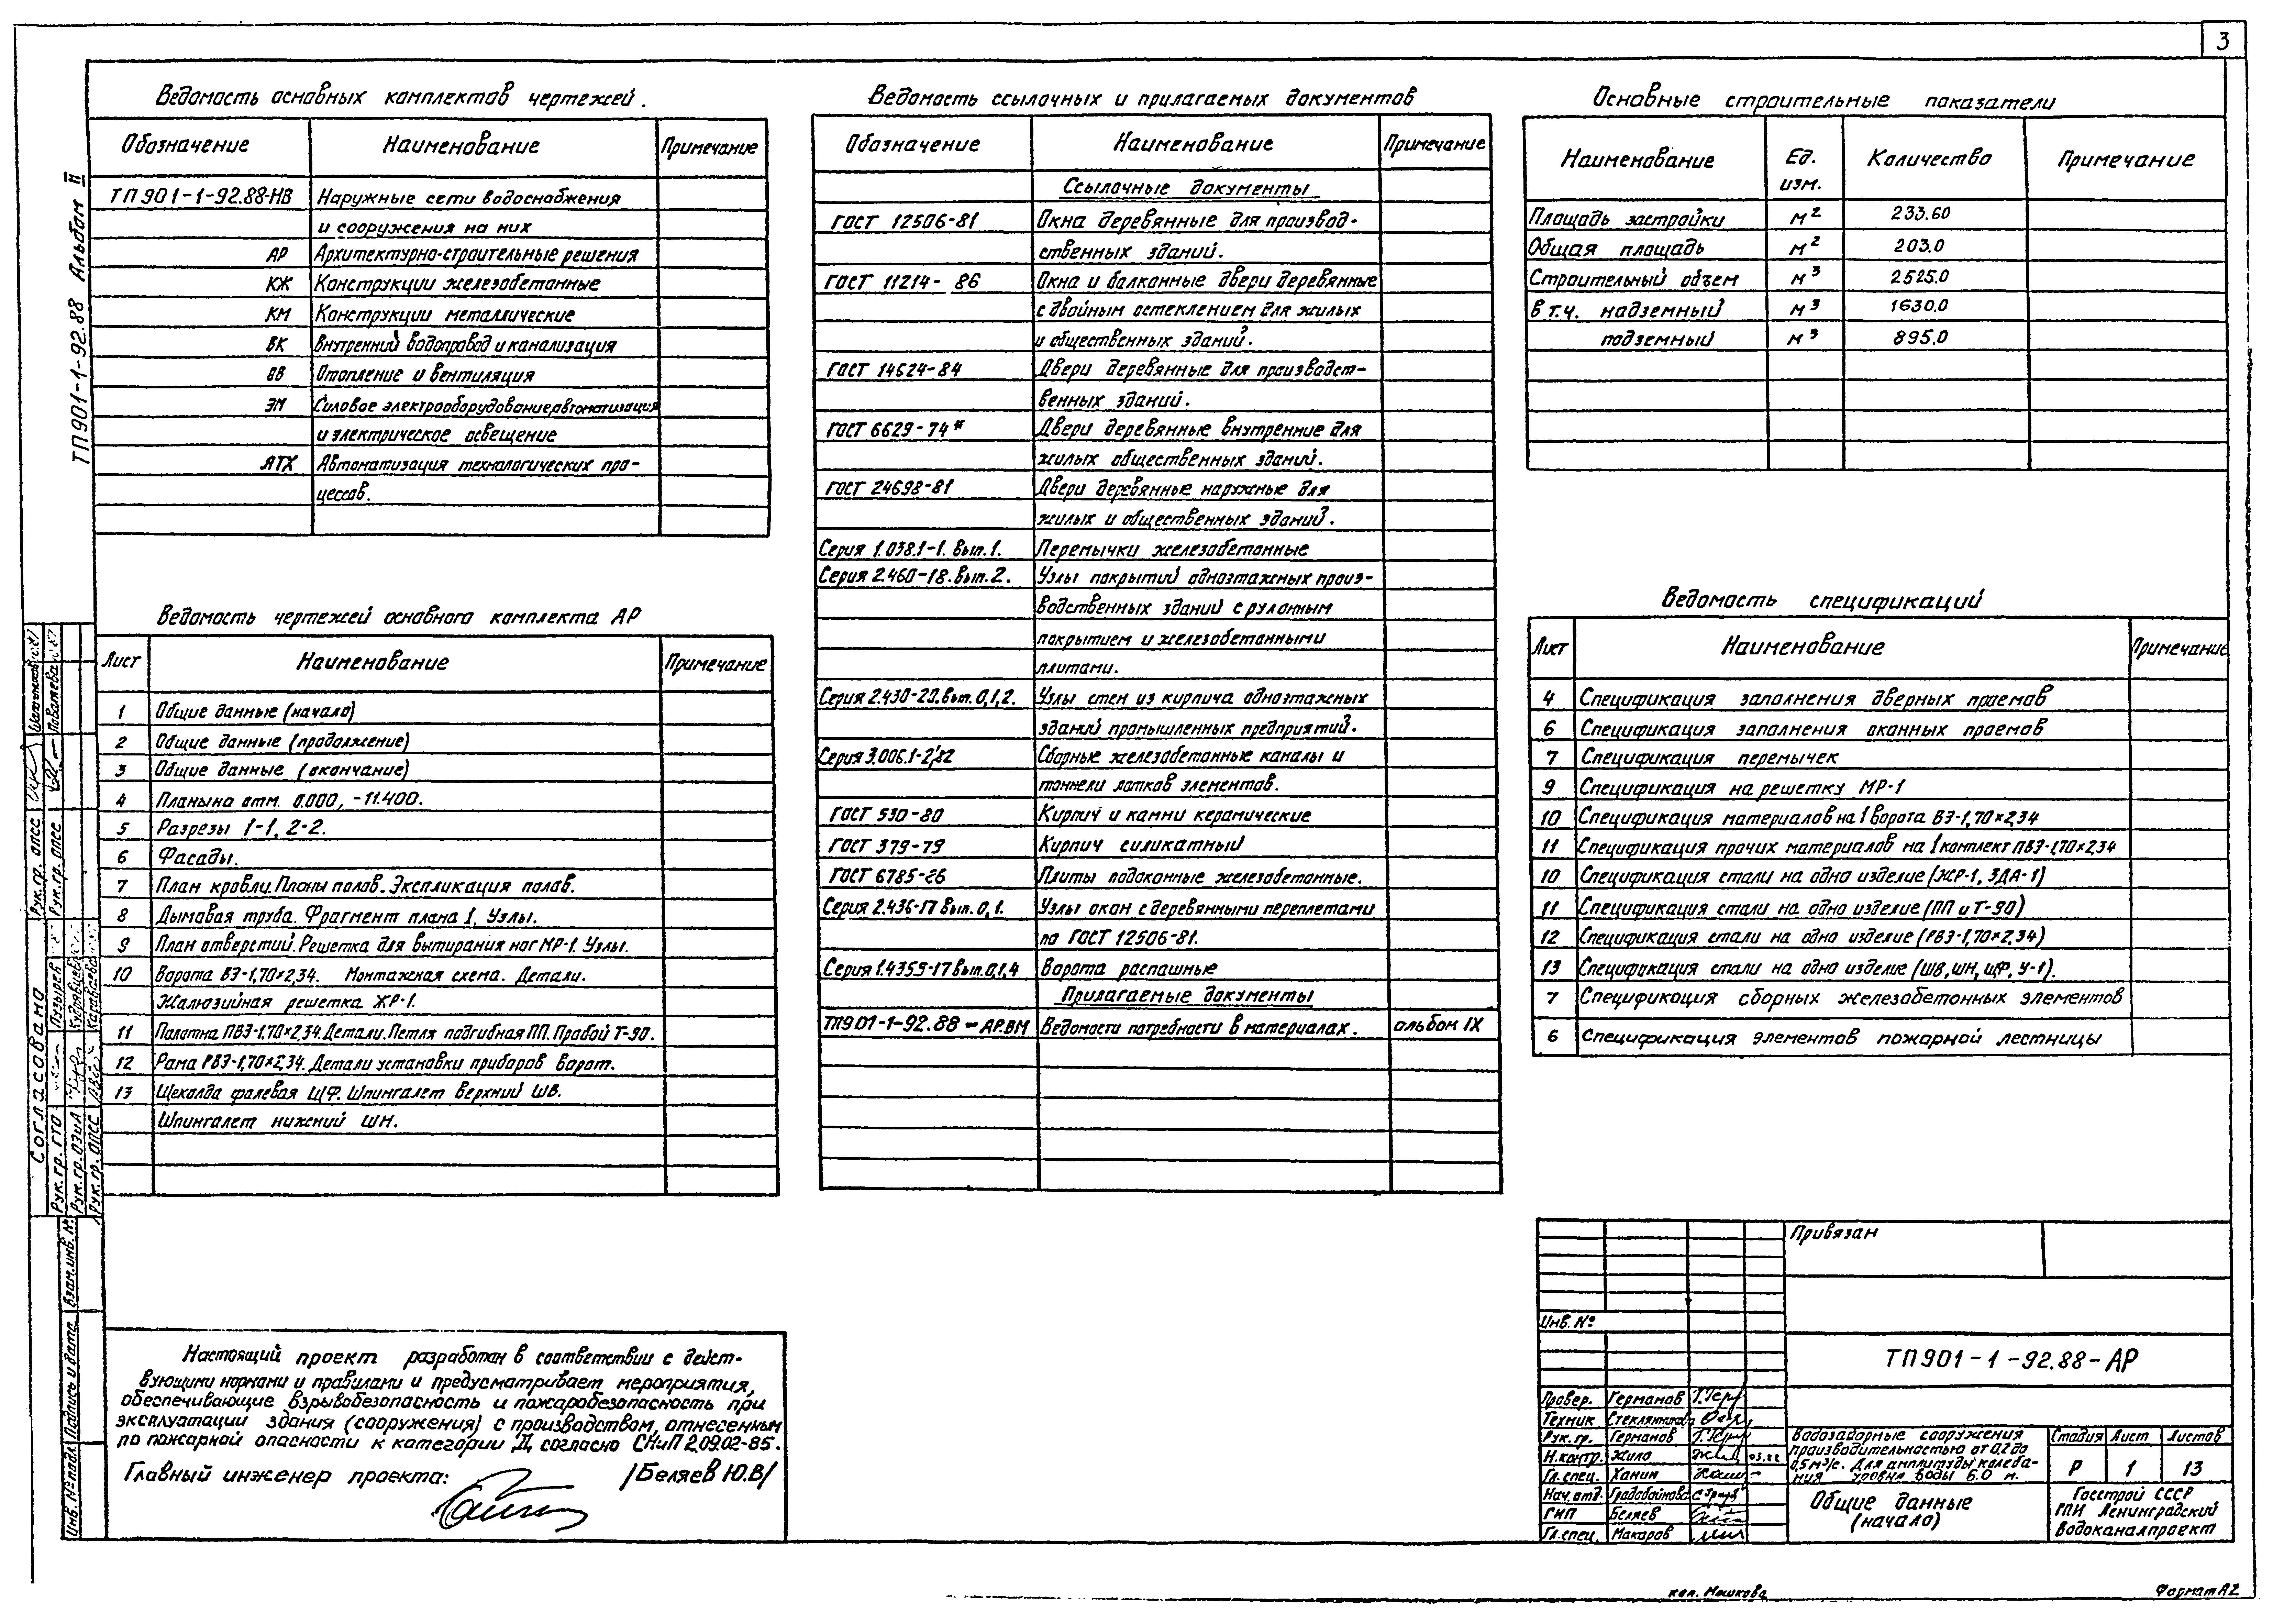 3
Ведомость основных комплектов чертежей.
Обозначение Наименование Примечание
ТП 901-1-92.88-НВ Наружные сети водоснабжения
и сооружения на них
АР Архитектурно-строительные решения
КЖ Конструкции железобетонные
КМ Конструкции металлические
ВК Внутренний водопровод и канализация
ОВ Отопление и вентиляция
ЭМ Силовое электрооборудование, автоматизация
и электрическое освещение
АТХ Автоматизация технологических про-
цессов.
Ведомость чертежей основного комплекта АР
Лист Наименование Примечание
1 Общие данные (начало)
2 Общие данные (продолжение)
3 Общие данные (окончание)
4 Планы на отм. 0.000, -11.400.
5 Разрезы 1-1, 2-2.
6 Фасады.
7 План кровли. Планы полов. Экспликация полов.
8 Дымовая труба. Фрагмент плана 1. Узлы.
9 План отверстий. Решетка для вытирания ног МР-1. Узлы.
10 Ворота ВЭ-1,70×2,34. Монтажная схема. Детали.
Жалюзийная решетка ЖР-1.
11 Полотна ПВЭ-1,70×2,34. Детали. Петля подгибная ПП. Пробой Т-90.
12 Рама РВЭ-1,70×2,34. Детали установки приборов ворот.
13 Щеколда фалевая ЩФ. Шпингалет верхний ШВ.
Шпингалет нижний ШН.
Настоящий проект разработан в соответствии с дейст-
вующими нормами и правилами и предусматривает мероприятия,
обеспечивающие взрывобезопасность и пожаробезопасность при
эксплуатации здания (сооружения) с производством, отнесенным
по пожарной опасности к категории „Д“ согласно СНиП 2.09.02-85.
Главный инженер проекта: /Беляев Ю.В/
Ведомость ссылочных и прилагаемых документов
Обозначение Наименование Примечание
Ссылочные документы
ГОСТ 12506-81 Окна деревянные для производ-
ственных зданий.
ГОСТ 11214-86 Окна и балконные двери деревянные
с двойным остеклением для жилых
и общественных зданий.
ГОСТ 14624-84 Двери деревянные для производст-
венных зданий.
ГОСТ 6629-74* Двери деревянные внутренние для
жилых общественных зданий.
ГОСТ 24698-81 Двери деревянные наружные для
жилых и общественных зданий.
Серия 1.038.1-1. вып.1. Перемычки железобетонные
Серия 2.460-18. вып.2. Узлы покрытий одноэтажных произ-
водственных зданий с рулонным
покрытием и железобетонными
плитами.
Серия 2.430-20. вып. 0,1,2. Узлы стен из кирпича одноэтажных
зданий промышленных предприятий.
Серия 3.006.1-2/82 Сборные железобетонные каналы и
тоннели лотков элементов.
ГОСТ 530-80 Кирпич и камни керамические
ГОСТ 379-79 Кирпич силикатный
ГОСТ 6785-86 Плиты подоконные железобетонные.
Серия 2.436-17 вып. 0,1. Узлы окон с деревянными переплетами
по ГОСТ 12506-81.
Серия 1.435.9-17 вып.0,1,4 Ворота распашные
Прилагаемые документы
ТП901-1-92.88-АР.ВМ Ведомости потребности в материалах. альбом IX
Основные строительные показатели
Наименование Ед. изм. Количество Примечание
Площадь застройки м² 233.60
Общая площадь м² 203.0
Строительный объем м³ 2525.0
в т.ч. надземный м³ 1630.0
подземный м³ 895.0
Ведомость спецификаций
Лист Наименование Примечание
4 Спецификация заполнения дверных проемов
6 Спецификация заполнения оконных проемов
7 Спецификация перемычек
9 Спецификация на решетку МР-1
10 Спецификация материалов на 1 ворота ВЭ-1,70×2,34
11 Спецификация прочих материалов на 1 комплект ПВЭ-1,70×2,34
10 Спецификация стали на одно изделие (ЖР-1, ЗДА-1)
11 Спецификация стали на одно изделие (ПП и Т-90)
12 Спецификация стали на одно изделие (РВЭ-1,70×2,34)
13 Спецификация стали на одно изделие (ШВ, ШН, ЩФ, У-1).
7 Спецификация сборных железобетонных элементов
6 Спецификация элементов пожарной лестницы
Привязан
Инв. №
ТП 901-1-92.88-АР
Провер. Германов
Техник Стеклянникова
Рук. гр. Германов
Н.контр. Жило 03.88
Гл.спец. Ханин
Нач.отд. Градобойнова
ГИП Беляев
Гл.спец. Макаров
Водозаборные сооружения
производительностью от 0,2 до
0,5 м³/с. Для амплитуды колеба-
ния уровня воды 6.0 м.
Стадия Лист Листов
Р 1 13
Общие данные
(начало)
Госстрой СССР
ГПИ Ленинградский
Водоканалпроект
кол. Мошкова
Формат А2
ТП 901-1-92.88 Альбом II
Согласовано
Рук. гр. ГТО Пузырев
Рук. гр. ОЗиА Кудрявцева
Рук. гр. ОПСС Караваева
Рук. гр. ОПСС
Рук. гр. ОПСС Поваляева
Инв. № подл. Подпись и дата Взам. инв. №